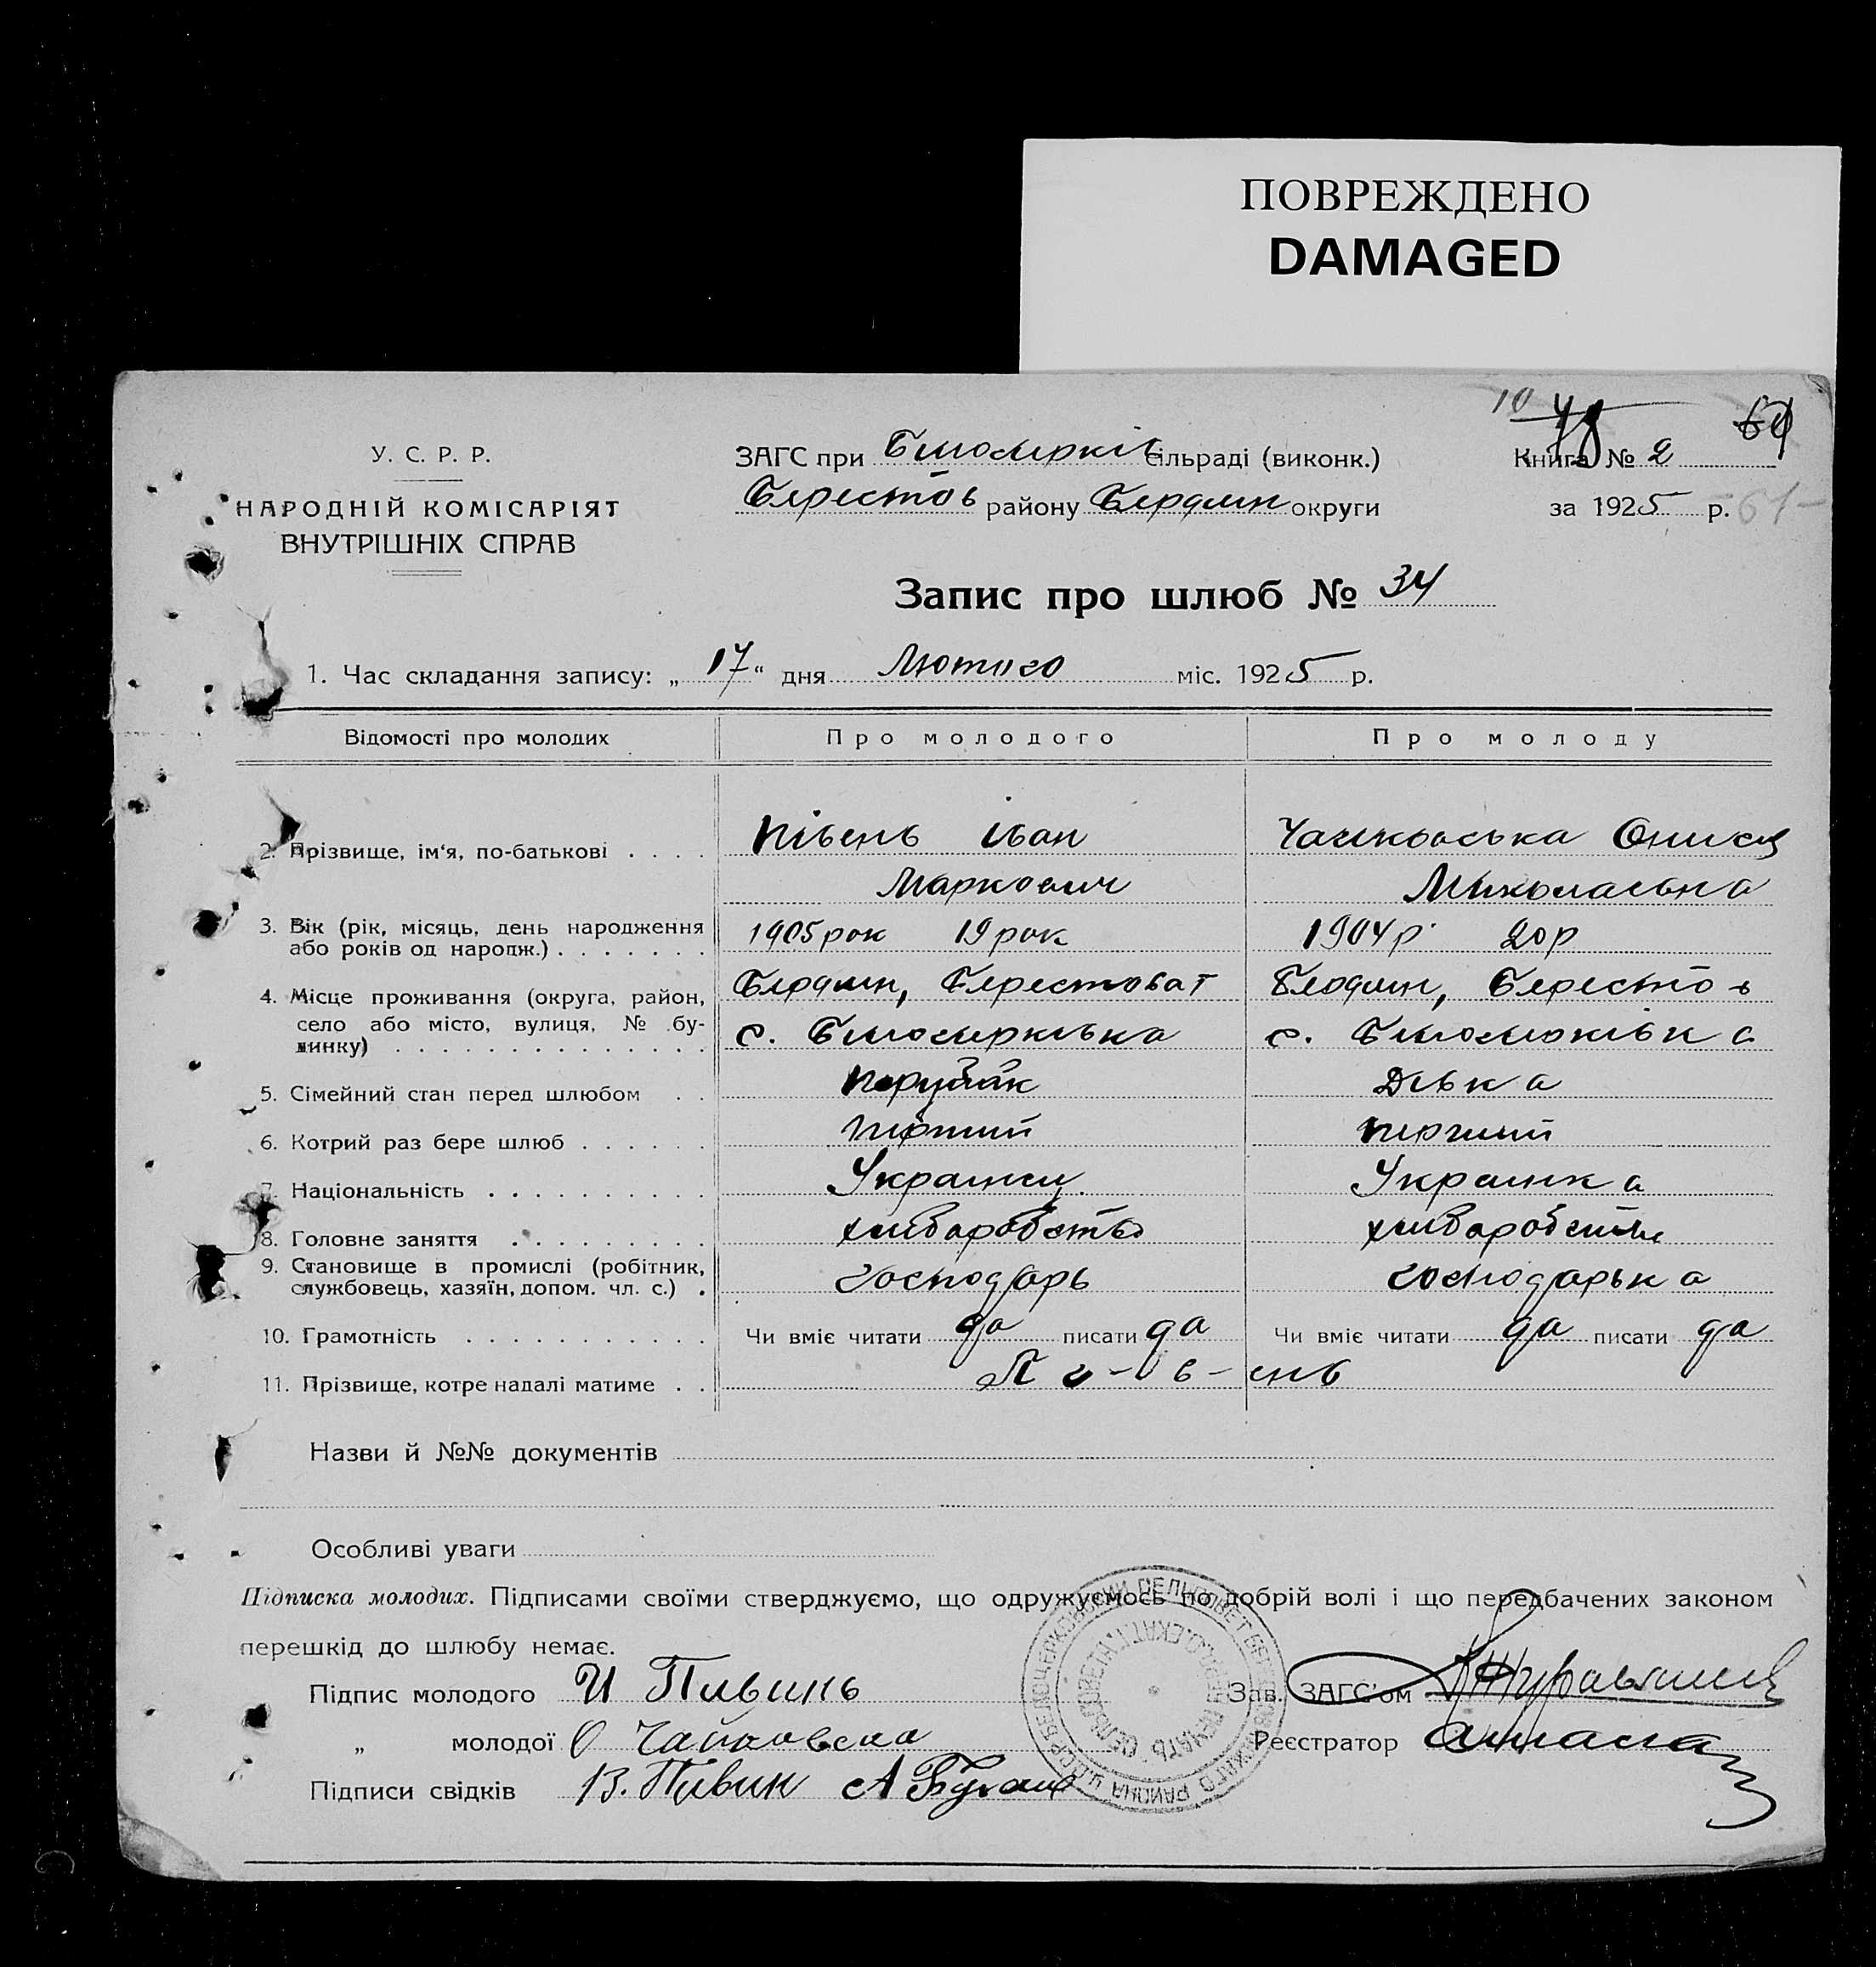 ПОВРЕЖДЕНО
DAMAGED
10 48 61
У. С. Р. Р.
НАРОДНІЙ КОМІСАРІЯТ
ВНУТРІШНІХ СПРАВ
ЗАГС при Білоцерків сільраді (виконк.)
Берестов району Бердян округи
Книга № 2
за 1925 р. 61
Запис про шлюб № 34
1. Час складання запису: „17“ дня Лютого міс. 1925 р.
Відомості про молодих Про молодого Про молоду
2. Прізвище, ім‘я, по-батькові . . . . Півень Іван Чайковська Онися
Маркович Миколаевна
3. Вік (рік, місяць, день народження 1905 рок 19 рок 1904 р. 20 р
або років од народж.) . . . . . . .
4. Місце проживання (округа, район, Бердян, Берестоват Бердян, Берестов
село або місто, вулиця, № бу- с. Білоцерківка с. Білоцерківка
динку) . . . . . . . . . . . . . .
5. Сімейний стан перед шлюбом . . парубак дівка
6. Котрий раз бере шлюб . . . . . . перший перший
7. Національність . . . . . . . . . . Українец Українка
8. Головне заняття . . . . . . . . . хлібаробство хлібаробство
9. Становище в промислі (робітник, господарь господарька
службовець, хазяїн, допом. чл. с.) .
10. Грамотність . . . . . . . . . . . Чи вміє читати да писати да Чи вміє читати да писати да
11. Прізвище, котре надалі матиме . . Пі-в-ень
Назви й №№ документів
Особливі уваги
Підписка молодих. Підписами своїми стверджуємо, що одружуємось по добрій волі і що передбачених законом
перешкід до шлюбу немає.
Підпис молодого И Пивинь Зав. ЗАГС’ом
„ молодої О Чайковска Реєстратор
Підписи свідків В. Півин А